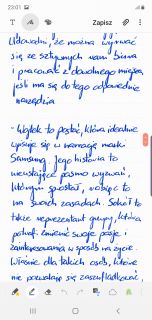 23:01
81%
Zapisz
udowodnić, że można wyrwać
się ze sztywnych ram biura
i pracować z dowolnego miejsca,
jeśli ma się do tego odpowiednie
narzędzia
- Wojtek to postać, która idealnie
wpisuje się w narrację marki
Samsung. Jego historia to
nieustające pasmo wyzwań,
którym sprostał, robiąc to
na swoich zasadach. Sokół to
także reprezentant grupy, która
potrafi zmienić swoje pasje i
zainteresowania w sposób na życie.
Właśnie dla takich osób, które
nie pozwalają się zaszufladkować,